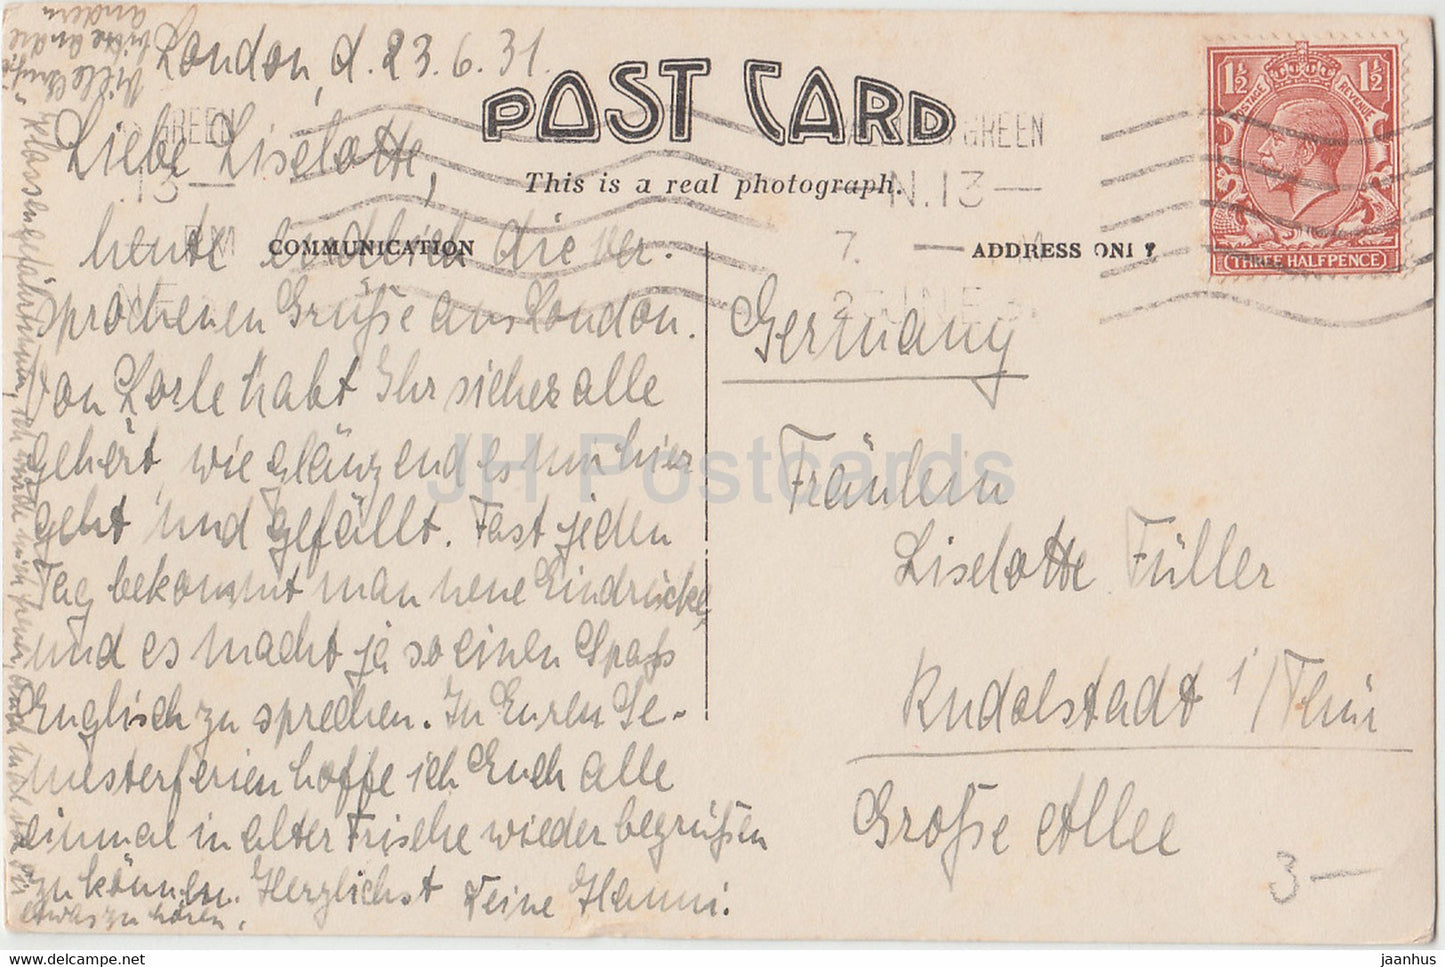 London, d. 23.6.31.
POST CARD
Liebe Liselotte,
This is a real photograph.
COMMUNICATION
ADDRESS ONLY
heute endlich die ver-
sprochenen Grüße aus London.
Von Lorle habt Ihr sicher alle
gehört, wie glänzend es mir hier
geht und gefällt. Fast jeden
Tag bekommt man neue Eindrücke,
und es macht ja so einen Spaß
Englisch zu sprechen. In Euren Se-
mesterferien hoffe ich Euch alle
einmal in alter Frische wieder begrüßen
zu können. Herzlichst Deine Hanni.
Klassengefährtinnen, ich würde mich freuen auch mal von
etwas zu hören.
GREEN
13
PM
GREEN
N.13
7.
JNE
POSTAGE
REVENUE
1½
1½
THREE HALFPENCE
Germany
Fräulein
Liselotte Füller
Rudolstadt i/Thür
Große Allee
3 —
JH Postcards
jaanhus